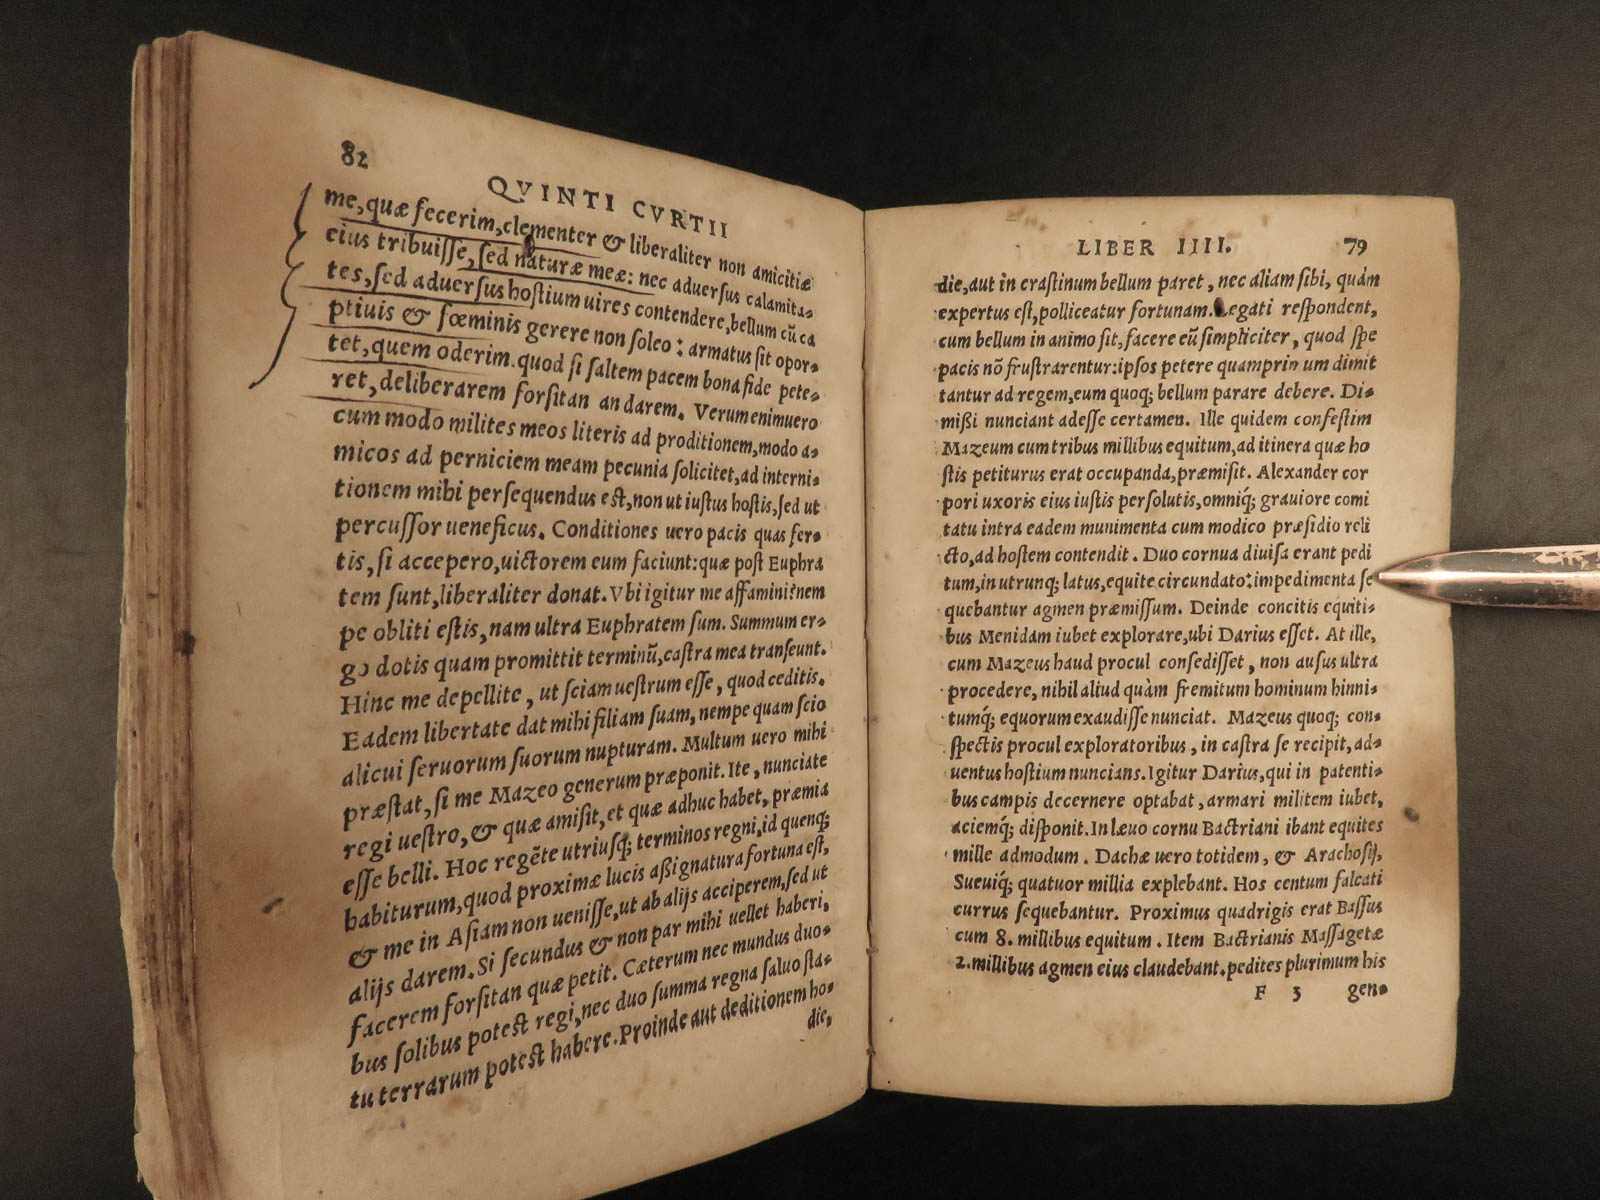 82
QVINTI CVRTII
me, quæ fecerim, clementer & liberaliter non amicitiæ
eius tribuisse, sed naturæ meæ: nec aduersus calamita-
tes, sed aduersus hostium uires contendere, bellum cũ ca
ptiuis & fœminis gerere non soleo: armatus sit opor-
tet, quem oderim. quod si saltem pacem bona fide pete-
ret, deliberarem forsitan an darem. Verumenimuero
cum modo milites meos literis ad proditionem, modo a-
micos ad perniciem meam pecunia solicitet, ad interni-
tionem mihi persequendus est, non ut iustus hostis, sed ut
percussor ueneficus. Conditiones uero pacis quas fer-
tis, si accepero, uictorem eum faciunt: quæ post Euphra
tem sunt, liberaliter donat. Vbi igitur me affamini? nem
pe obliti estis, nam ultra Euphratem sum. Summum er-
go dotis quam promittit terminũ, castra mea transeunt.
Hinc me depellite, ut sciam uestrum esse, quod ceditis.
Eadem libertate dat mihi filiam suam, nempe quam scio
alicui seruorum suorum nupturam. Multum uero mihi
præstat, si me Mazeo generum præponit. Ite, nunciate
regi uestro, & quæ amisit, et quæ adhuc habet, præmia
esse belli. Hoc regẽte utriusq; terminos regni, id quenq;
habiturum, quod proximæ lucis aßignatura fortuna est,
& me in Asiam non uenisse, ut ab alijs acciperem, sed ut
alijs darem. Si secundus & non par mihi uellet haberi,
facerem forsitan quæ petit. Cæterum nec mundus duo-
bus solibus potest regi, nec duo summa regna saluo sta-
tu terrarum potest habere. Proinde aut deditionem ho-
die,
LIBER IIII. 79
die, aut in crastinum bellum paret, nec aliam sibi, quàm
expertus est, polliceatur fortunam. Legati respondent,
cum bellum in animo sit, facere eũ simpliciter, quod spe
pacis nõ frustrarentur: ipsos petere quamprimum dimit
tantur ad regem, eum quoq; bellum parare debere. Di-
mißi nunciant adesse certamen. Ille quidem confestim
Mazeum cum tribus millibus equitum, ad itinera quæ ho
stis petiturus erat occupanda, præmisit. Alexander cor
pori uxoris eius iustis persolutis, omniq́; grauiore comi
tatu intra eadem munimenta cum modico præsidio reli
cto, ad hostem contendit. Duo cornua diuisa erant pedi
tum, in utrunq; latus, equite circundato: impedimenta se
quebantur agmen præmissum. Deinde concitis equiti-
bus Menidam iubet explorare, ubi Darius esset. At ille,
cum Mazeus haud procul consedisset, non ausus ultra
procedere, nihil aliud quàm fremitum hominum hinni-
tumq́; equorum exaudisse nunciat. Mazeus quoq; con-
spectis procul exploratoribus, in castra se recipit, ad-
uentus hostium nuncians. Igitur Darius, qui in patenti-
bus campis decernere optabat, armari militem iubet,
aciemq́; disponit. In læuo cornu Bactriani ibant equites
mille admodum. Dachæ uero totidem, & Arachosij,
Sueuiq́; quatuor millia explebant. Hos centum falcati
currus sequebantur. Proximus quadrigis erat Bassus
cum 8. millibus equitum. Item Bactrianis Massagetæ
2. millibus agmen eius claudebant. pedites plurimum his
F 3 gen-